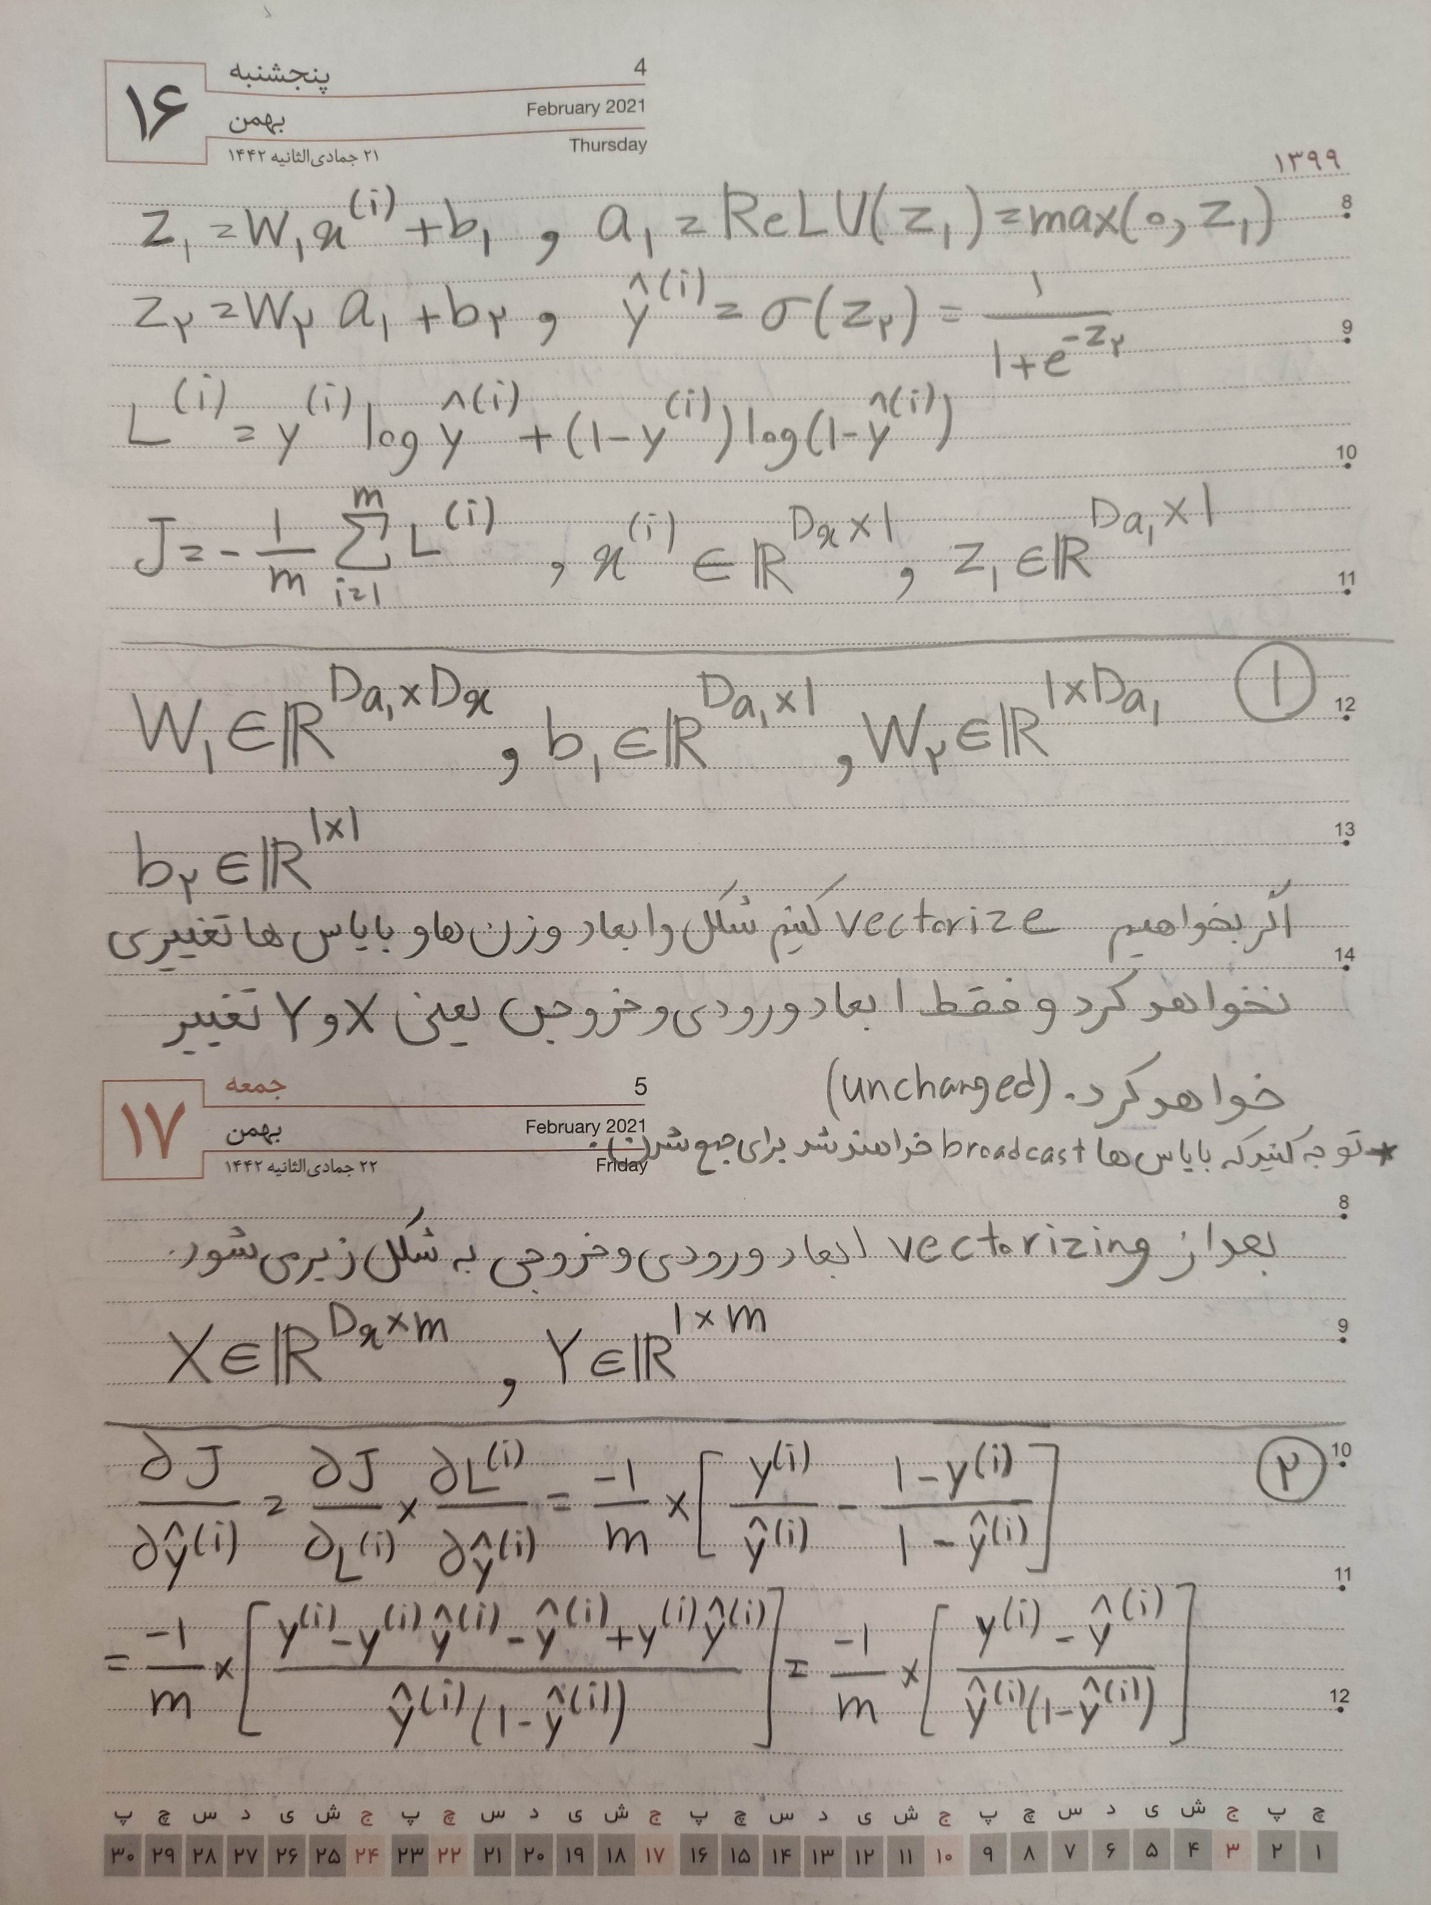 ۱۶
پنجشنبه
بهمن
۲۱ جمادی‌الثانیه ۱۴۴۲
4
February 2021
Thursday
۱۳۹۹
Z₁ = W₁x⁽ⁱ⁾ + b₁ , a₁ = ReLU(z₁) = max(۰, z₁)
8
Z۲ = W۲ a₁ + b۲ , ŷ⁽ⁱ⁾ = σ(z۲) = ۱ / (1+e^(-z۲))
9
L⁽ⁱ⁾ = y⁽ⁱ⁾ log ŷ⁽ⁱ⁾ + (1-y⁽ⁱ⁾) log(1-ŷ⁽ⁱ⁾)
10
J = - 1/m Σ_{i=1}^{m} L⁽ⁱ⁾ , x⁽ⁱ⁾ ∈ ℝ^(Dx×1) , z₁ ∈ ℝ^(Da₁×1)
11
①
W₁ ∈ ℝ^(Da₁×Dx) , b₁ ∈ ℝ^(Da₁×1) , W۲ ∈ ℝ^(1×Da₁)
12
b۲ ∈ ℝ^(1×1)
13
اگر بخواهیم vectorize کنیم شکل و ابعاد وزن ها و بایاس ها تغییری
14
نخواهد کرد و فقط ابعاد ورودی و خروجی یعنی X و Y تغییر
خواهد کرد. (unchanged)
۱۷
جمعه
بهمن
۲۲ جمادی‌الثانیه ۱۴۴۲
5
February 2021
Friday
* توجه کنید که بایاس ها broadcast خواهند شد برای جمع شدن.
8
بعد از vectorizing ابعاد ورودی و خروجی به شکل زیر می شود.
X ∈ ℝ^(Dx×m) , Y ∈ ℝ^(1×m)
9
②
∂J/∂ŷ⁽ⁱ⁾ = ∂J/∂L⁽ⁱ⁾ × ∂L⁽ⁱ⁾/∂ŷ⁽ⁱ⁾ = -1/m × [ y⁽ⁱ⁾/ŷ⁽ⁱ⁾ - (1-y⁽ⁱ⁾)/(1-ŷ⁽ⁱ⁾) ]
10
11
= -1/m × [ (y⁽ⁱ⁾ - y⁽ⁱ⁾ŷ⁽ⁱ⁾ - ŷ⁽ⁱ⁾ + y⁽ⁱ⁾ŷ⁽ⁱ⁾) / (ŷ⁽ⁱ⁾(1-ŷ⁽ⁱ⁾)) ] = -1/m × [ (y⁽ⁱ⁾ - ŷ⁽ⁱ⁾) / (ŷ⁽ⁱ⁾(1-ŷ⁽ⁱ⁾)) ]
12
چ پ ج ش ی د س چ پ ج ش ی د س چ پ ج ش ی د س چ پ ج ش ی د س چ پ
۱ ۲ ۳ ۴ ۵ ۶ ۷ ۸ ۹ ۱۰ ۱۱ ۱۲ ۱۳ ۱۴ ۱۵ ۱۶ ۱۷ ۱۸ ۱۹ ۲۰ ۲۱ ۲۲ ۲۳ ۲۴ ۲۵ ۲۶ ۲۷ ۲۸ ۲۹ ۳۰